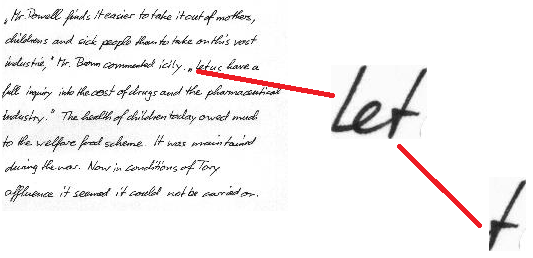 „Mr. Powell finds it easier to take it out of mothers,
childrens and sick people than to take on this vast
industrie," Mr. Brown commented icily. „Let us have a
full inquiry into the cost of drugs and the pharmaceutical
industry." The health of children today owed much
to the welfare food scheme. It was maintaind
during the war. Now in conditions of Tory
affluence it seemed it could not be carried on.
Let
t